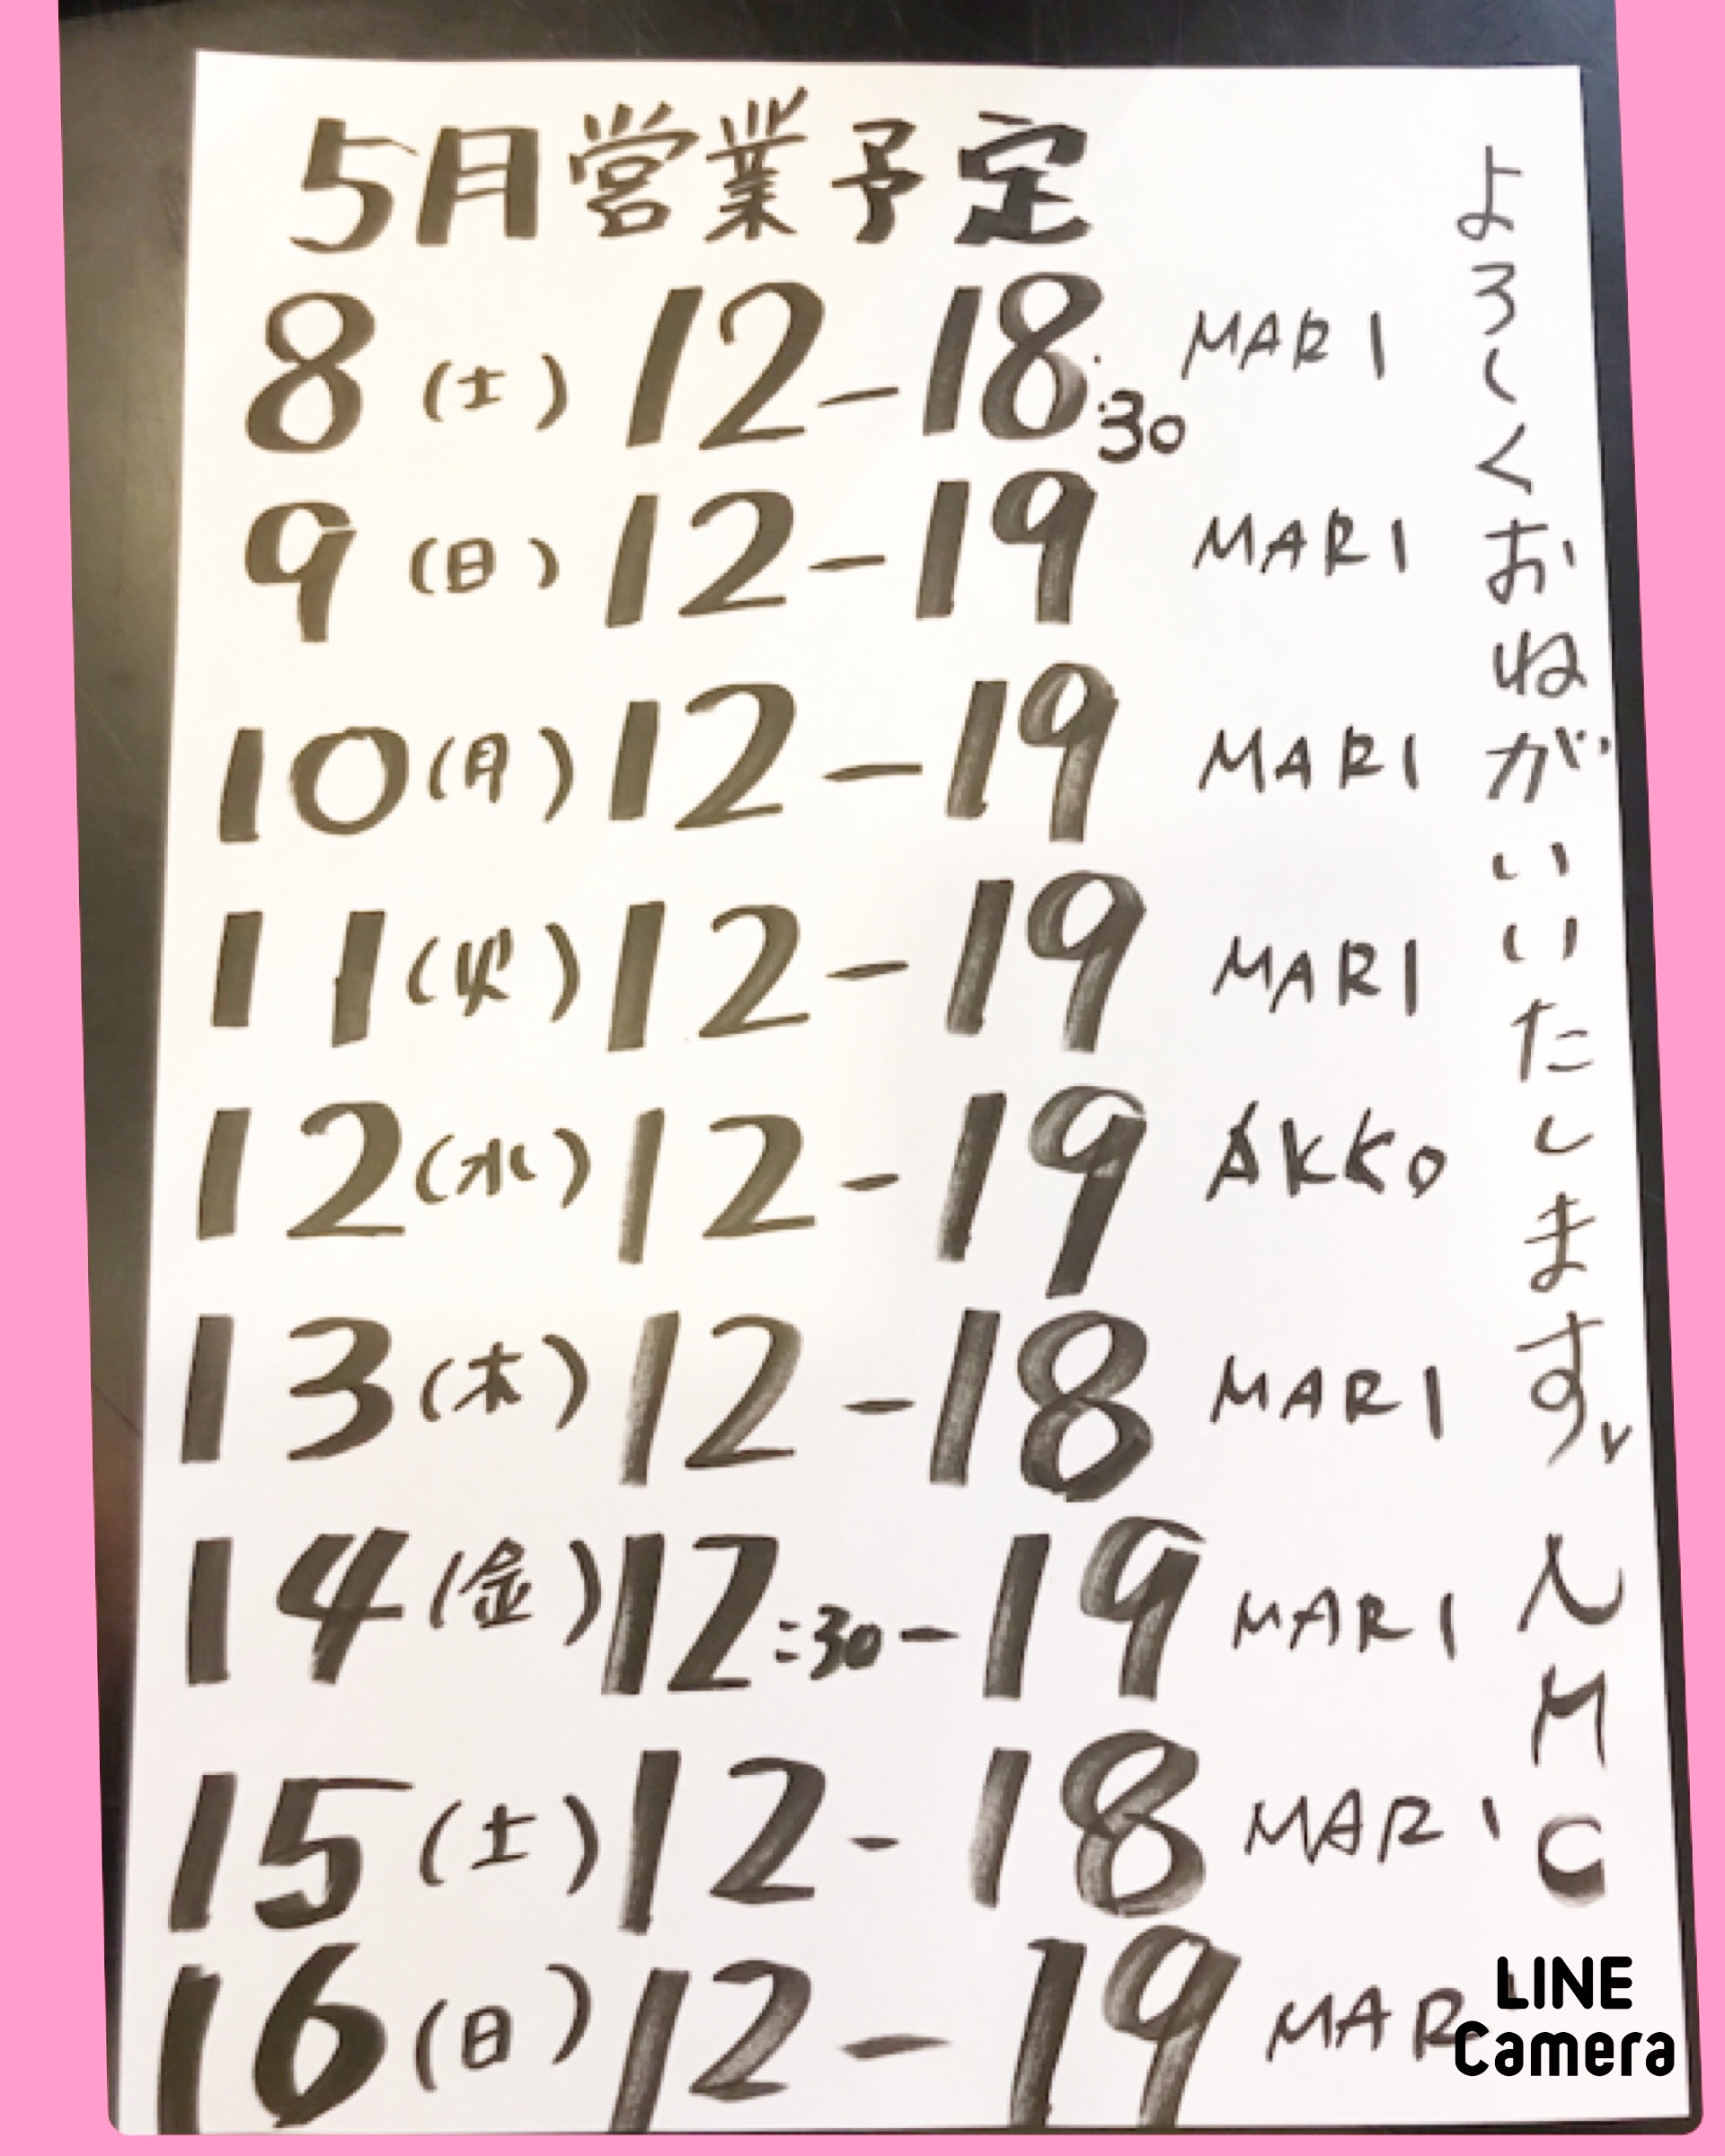 5月営業予定
8（土）12-18:30 MARI
9（日）12-19 MARI
10（月）12-19 MARI
11（火）12-19 MARI
12（水）12-19 AKKO
13（木）12-18 MARI
14（金）12:30-19 MARI
15（土）12-18 MARI
16（日）12-19 MAR
よろしくおねがいいたします
LINE
Camera